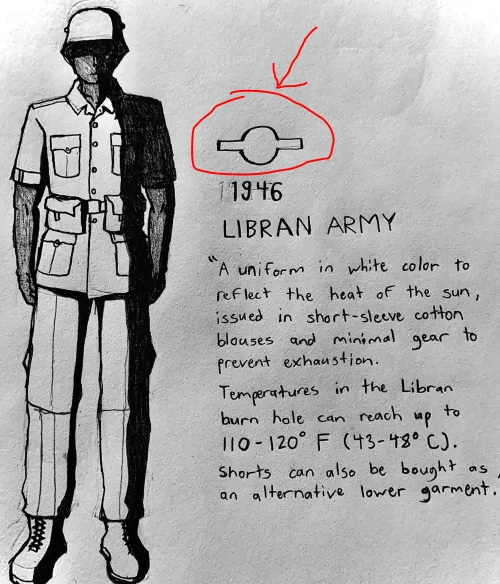 1946
LIBRAN ARMY
"A uniform in white color to
reflect the heat of the sun,
issued in short-sleeve cotton
blouses and minimal gear to
prevent exhaustion.
Temperatures in the Libran
burn hole can reach up to
110-120° F (43-48° C).
Shorts can also be bought as
an alternative lower garment.